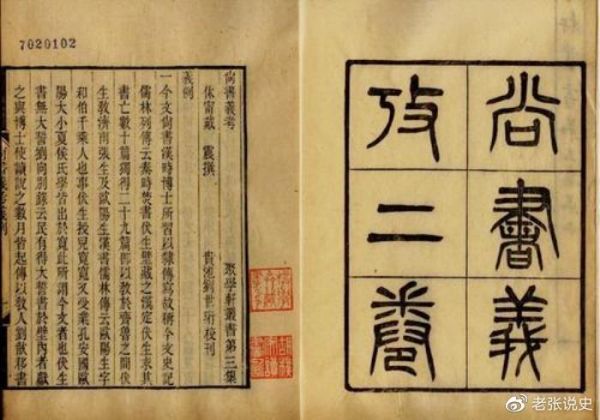 尚書義
攷二卷
7020102
尚書義考 聚學軒叢書第三集
休甯戴 震撰 貴池劉世珩校刊
義例
一今文尚書漢時博士所習以隸傳寫故稱今文史記
儒林列傳云秦時焚書伏生壁藏之漢定伏生求其
書亡數十篇獨得二十九篇即以敎於齊魯之間伏
生敎濟南張生及歐陽生漢書儒林傳云歐陽生字
和伯千乘人也事伏生授兒寬寬又受業孔安國歐
陽大小夏侯氏學皆出於寬此所謂今文者也伏生
書無大誓劉向別錄云民有得大誓書於壁內者獻
之與博士使讀說之數月皆起傳以敎人劉歆移書
@老张说史